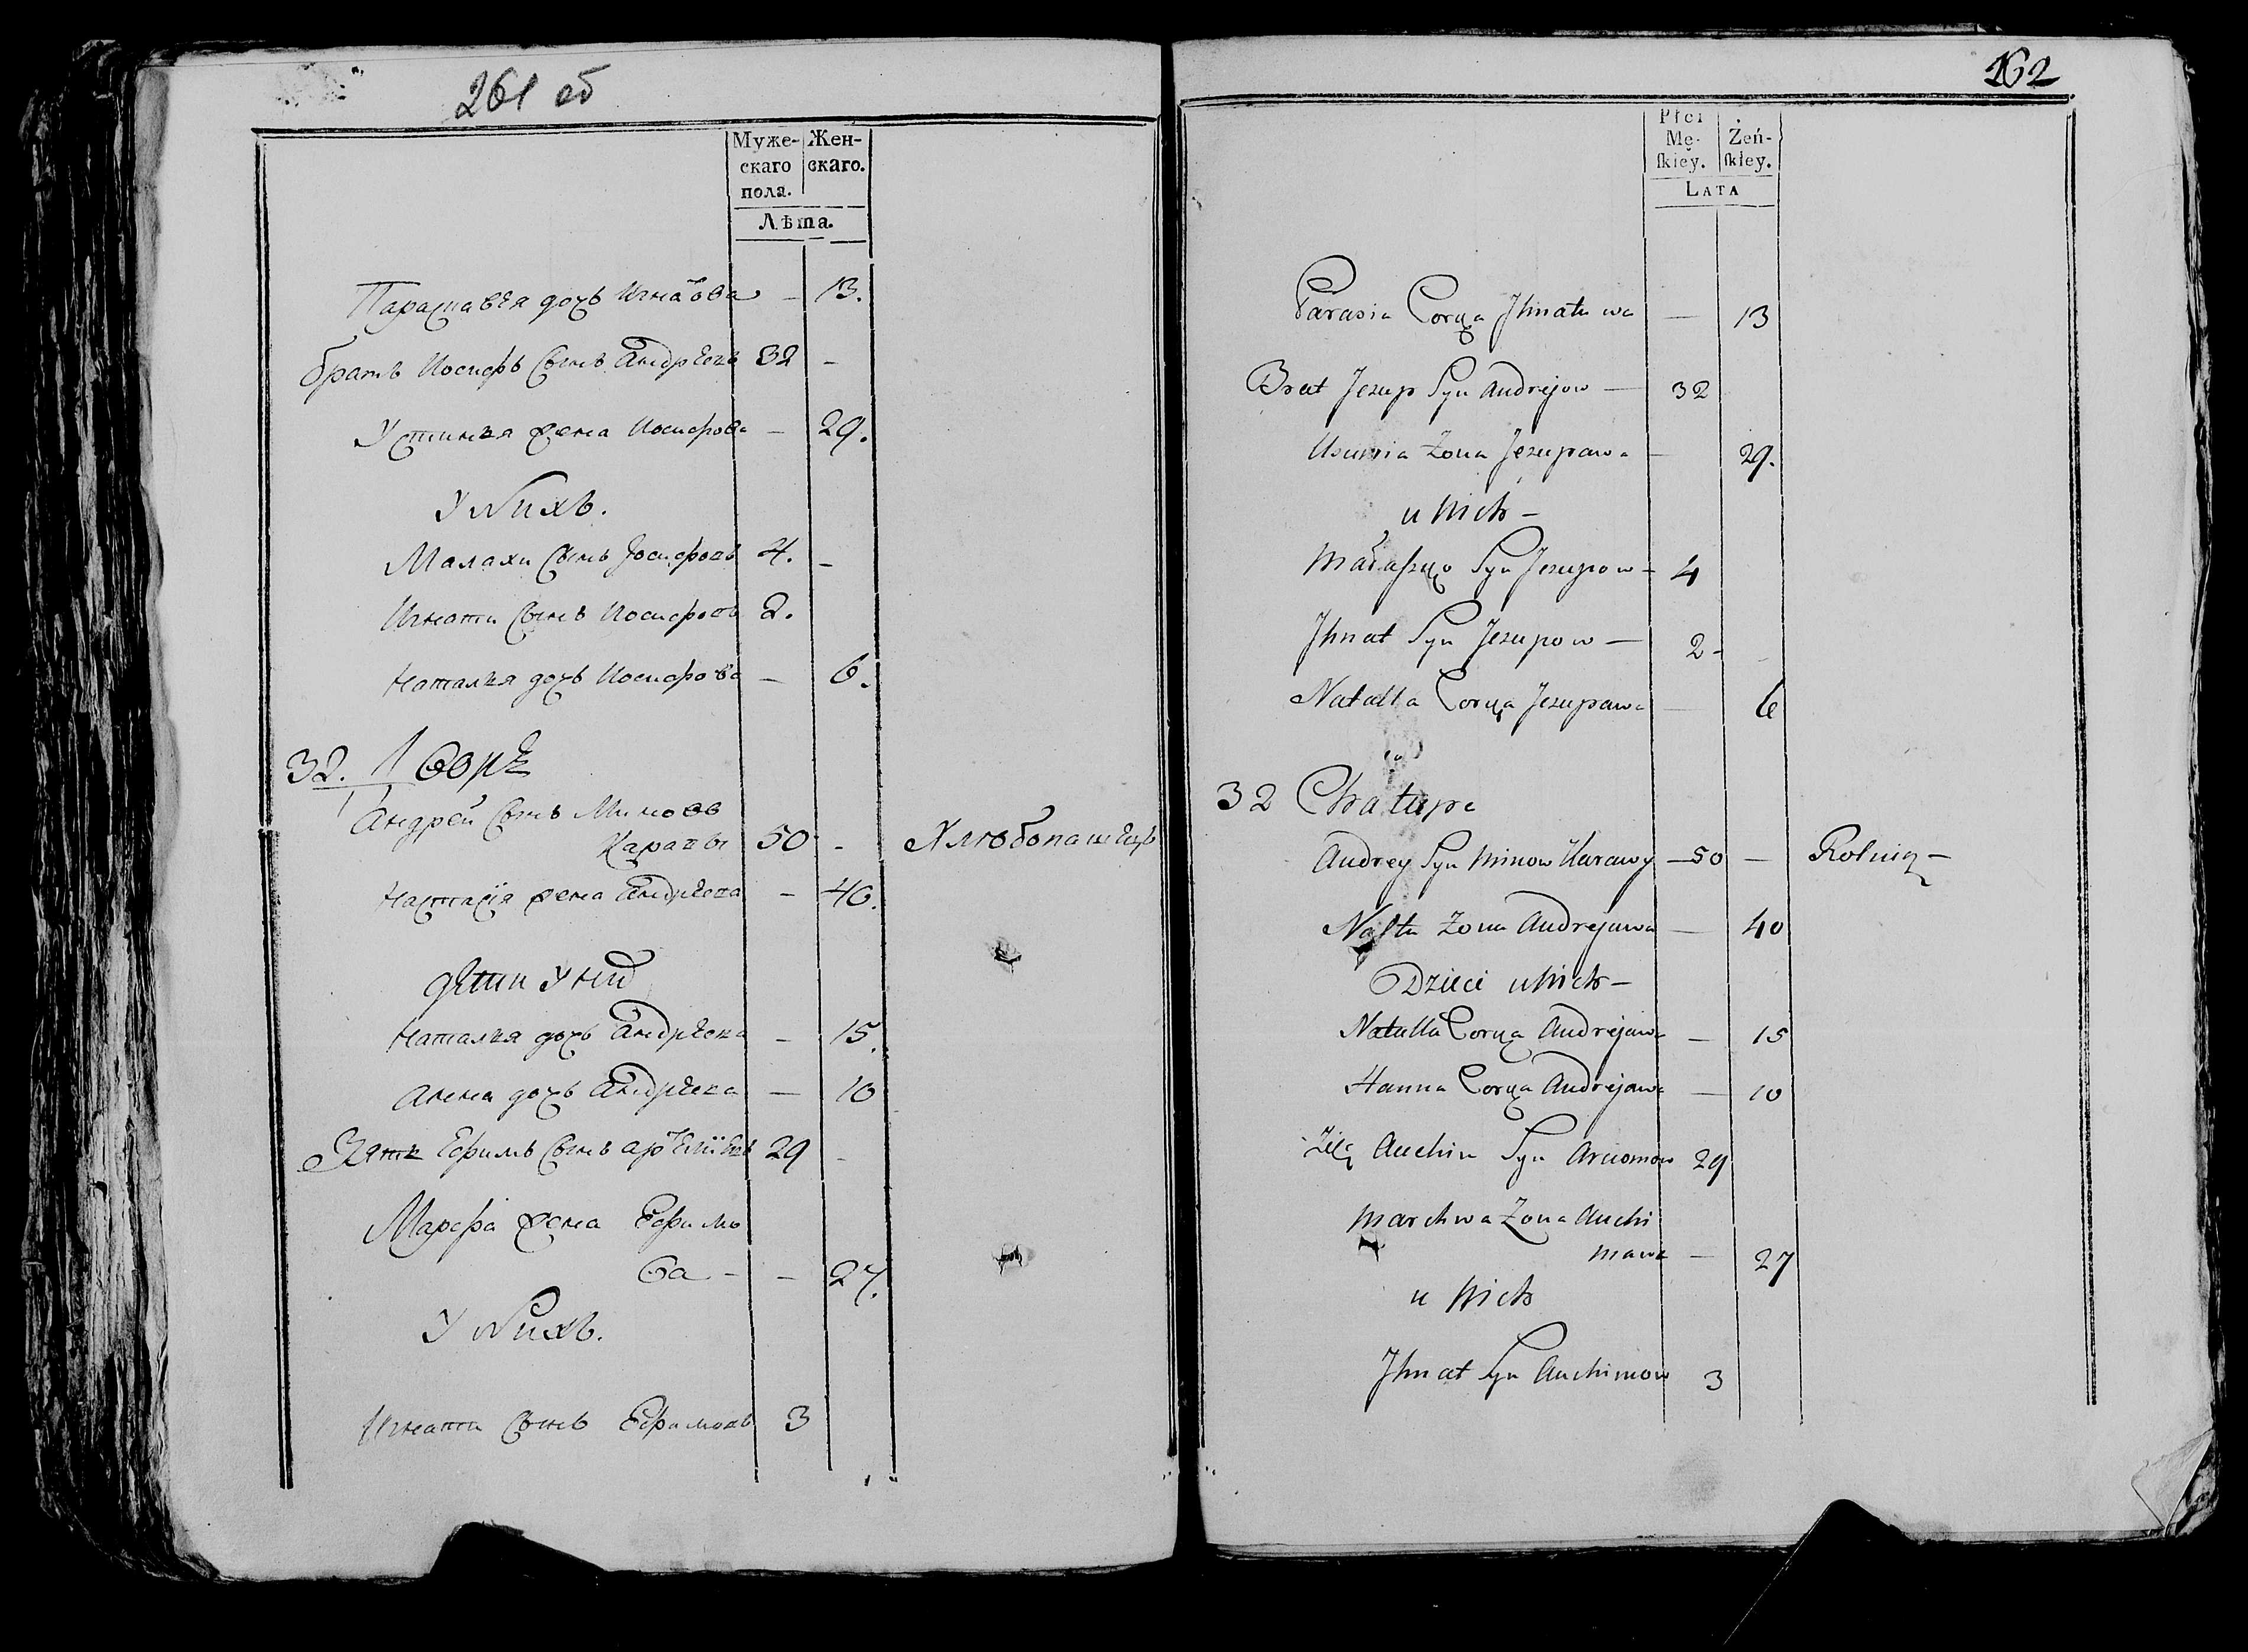 261 об
Муже- Жен-
скаго скаго.
пола.
Лѣта.
Параскавея дочь Игнатова — 13.
братъ Иосифъ Сынъ Андрѣевъ 32 —
Устинья жена Иосифова — 29.
У Нихъ.
Малахи Сынъ Иосифовъ 4. —
Игнати Сынъ Иосифовъ 2.
Наталья дочь Иосифова — 6.
32.
Андрей Сынъ Миновъ
Каравы 50 — Хлѣбопашецъ
Настасія жена Андрѣева — 40.
дѣти У них
Наталья дочь Андрѣева — 15.
Анна дочь Андрѣева — 10
Зять Ефимъ Сынъ Артеміевъ 29 —
Марфа жена Ефимо
ва — — 27.
У Нихъ.
Игнати Сынъ Ефимовъ 3
162
Płci
Mę- Żeń-
ſkiey. ſkiey.
LATA
Parasia Corka Jhnatowa — 13
Brat Jezup Syn Andrejow — 32
Żona Jezupawa — 29.
u Nich —
Syn Jezupow — 4
Jhnat Syn Jezupow — 2 —
Natalla Corka Jezupawa — 6
32 Chałupa
Andrey Syn Minow Karawy — 50 — Rolnik —
Nasta Żona Andrejawa — 40
Dzieci u Nich —
Natalla Corka Andrejawa — 15
Hanna Corka Andrejawa — 10
Zięć Auchim Syn Arciomow 29
Marchwa Żona Auchi
mawa — 27
u Nich
Jhnat Syn Auchimow 3